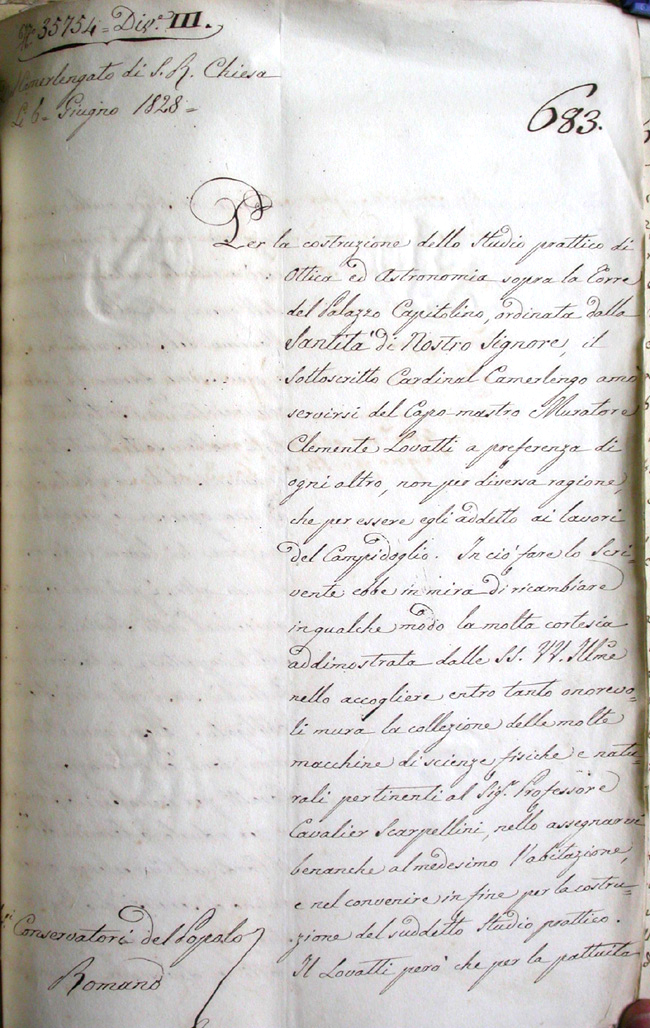 N.° 35754 = Div.e III.
Camerlengato di S. R. Chiesa
Li 6 - Giugno 1828 =
683.
Per la costruzione dello Studio prattico di
Ottica ed Astronomia sopra la Torre
del Palazzo Capitolino, ordinata dalla
Santità di Nostro Signore, il
Sottoscritto Cardinal Camerlengo amò
servirsi del Capo-mastro Muratore
Clemente Lovatti a preferenza di
ogni altro, non per diversa ragione,
che per essere egli addetto ai lavori
del Campidoglio. In ciò fare lo Scri-
vente ebbe in mira di ricambiare
in qualche modo la molta cortesia
addimostrata dalle SS. VV. Illme
nello accogliere entro tanto onorevo-
li mura la collezione delle molte
macchine di scienze fisiche e natu-
rali pertinenti al Sig.r Professore
Cavalier Scarpellini, nello assegnarvi
benanche al medesimo l'abitazione,
e nel convenire in fine per la costru-
zione del suddetto Studio prattico.
Il Lovatti però che per la pattuita
Conservatori del Popolo
Romano